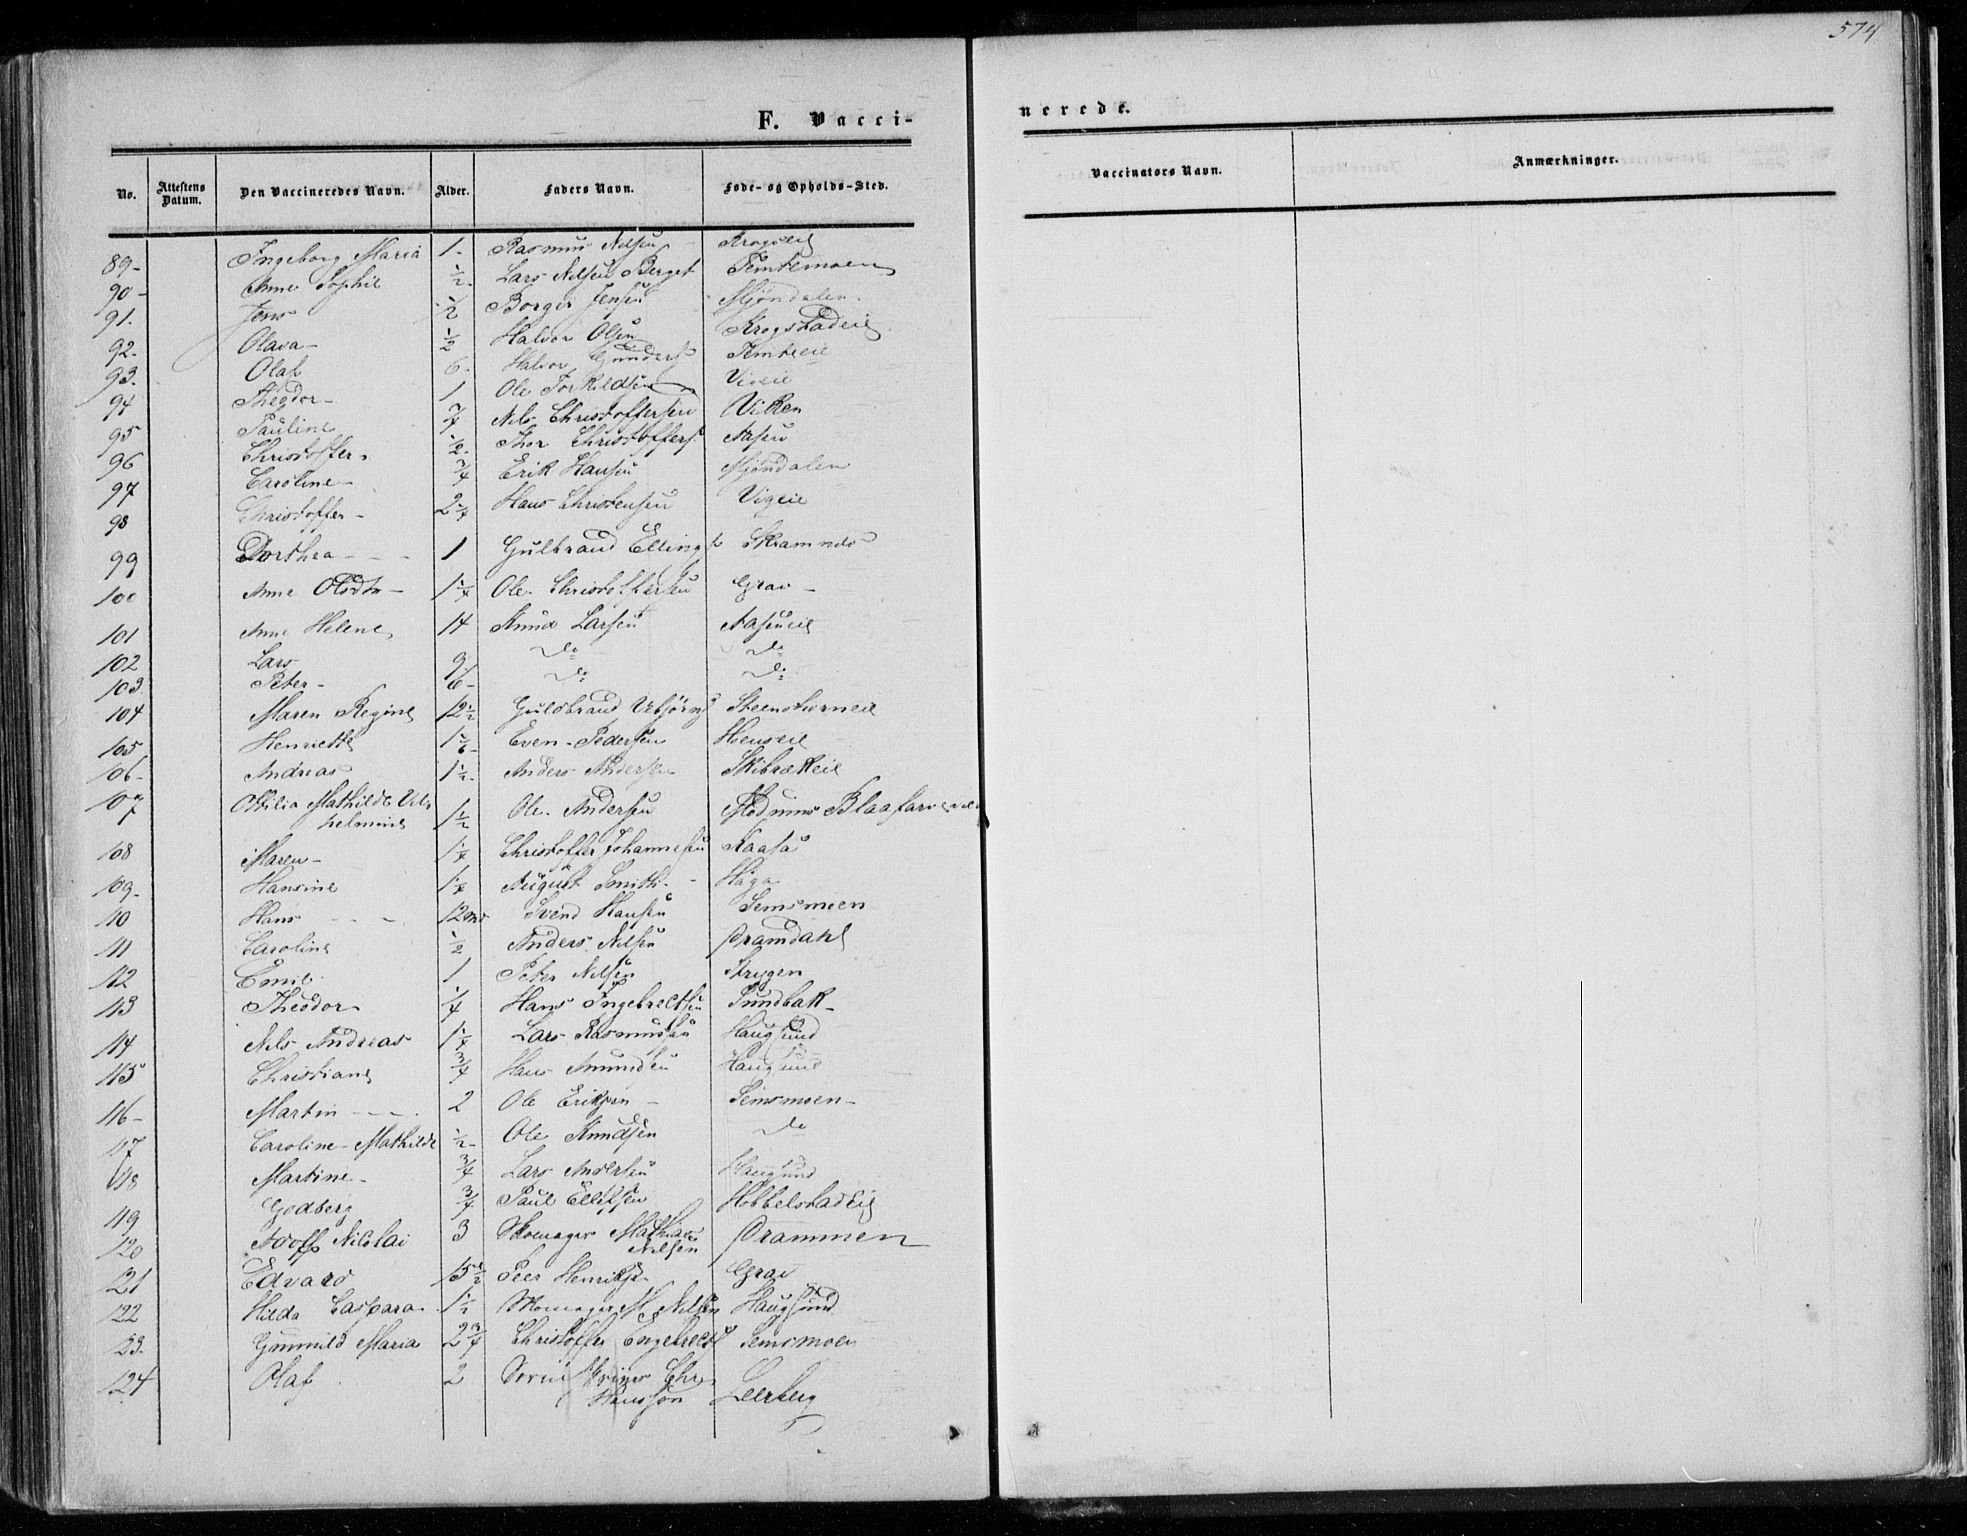 574
F. Vacci-
nerede.
No. Attestens Datum. Den Vaccineredes Navn. Alder. Faders Navn. Føde- og Opholds-Sted.
Vaccinators Navn. Anmærkninger.
89- Ingeborg Maria 1- Rasmus Nilsen
90- Anne Sophie ½ Lars Nilsen Berget Temtemoen
91. Jens ½ Borger Jensen Mjøndalen
92. Olava- ½ Halvor Olsen Krogstadeie
93. Olaf 6- Halvor Gunders Temteeie
94 Theodor- 1 Ole Torkildsen
95 Pauline Nils Christoffersen Viken
96 Christoffer ½ Thor Christoffers Aasen
97 Caroline- ¾ Erik Hansen Mjøndalen
98 Christoffer- 2¼ Hans Christensen Vigeie
99 Dorthea- 1 Gulbrand Ellings Skramnes
100 Anne 1¼ Ole Christoffersen Grav-
101 Anne Helene 14 Knud Larsen Aaseneie
102 Lars 9 do do
103 Peter- 6- do do
104 Maren Regine 12½ Guldbrand Steensherneie
105 Henriette Even Pedersen Hoenseie
106- Andreas 1½ Anders Andersen Skibrækeie
107 Ottilia Mathilde Vilhelmine 1½ Ole Andersen Modums Blaafarve
108 Maren- 1¼ Christoffer Johannesen Kaasa
109- Hansine August Smith- Haga
110 Hans Svend Hansen Semsmoen
111 Caroline ½ Anders Nilsen Dramdahl
112 Emil 1 Peter Nilsen Strygen
113 Theodor ¼ Hans Ingebrectsen Sundbak
114 Nils Andreas 1¼ Lars Rasmussen Haugsund
115 Christiane ¾ Hans Amundsen Haugsund
116- Martin 2 Ole Eriksen Semsmoen-
117 Caroline Mathilde ½ Ole Knudsen do
118 Martine- ¾ Lars Andersen Haugsund
119 Godberg ¾ Paul Ellefsen Hobbelstadeie
120 Adolf Nicolai 3 Skomager Mathias Nilsen Drammen
121 Edvard Peer Henriks Grav
122 Hilda Caspara 1½ Skomager M. Nilsen Haugsund
123. Gunnild Maria 2¾ Christoffer Engebrects Semsmoen
124 Olaf 2 Chr. Hansson Leerberg